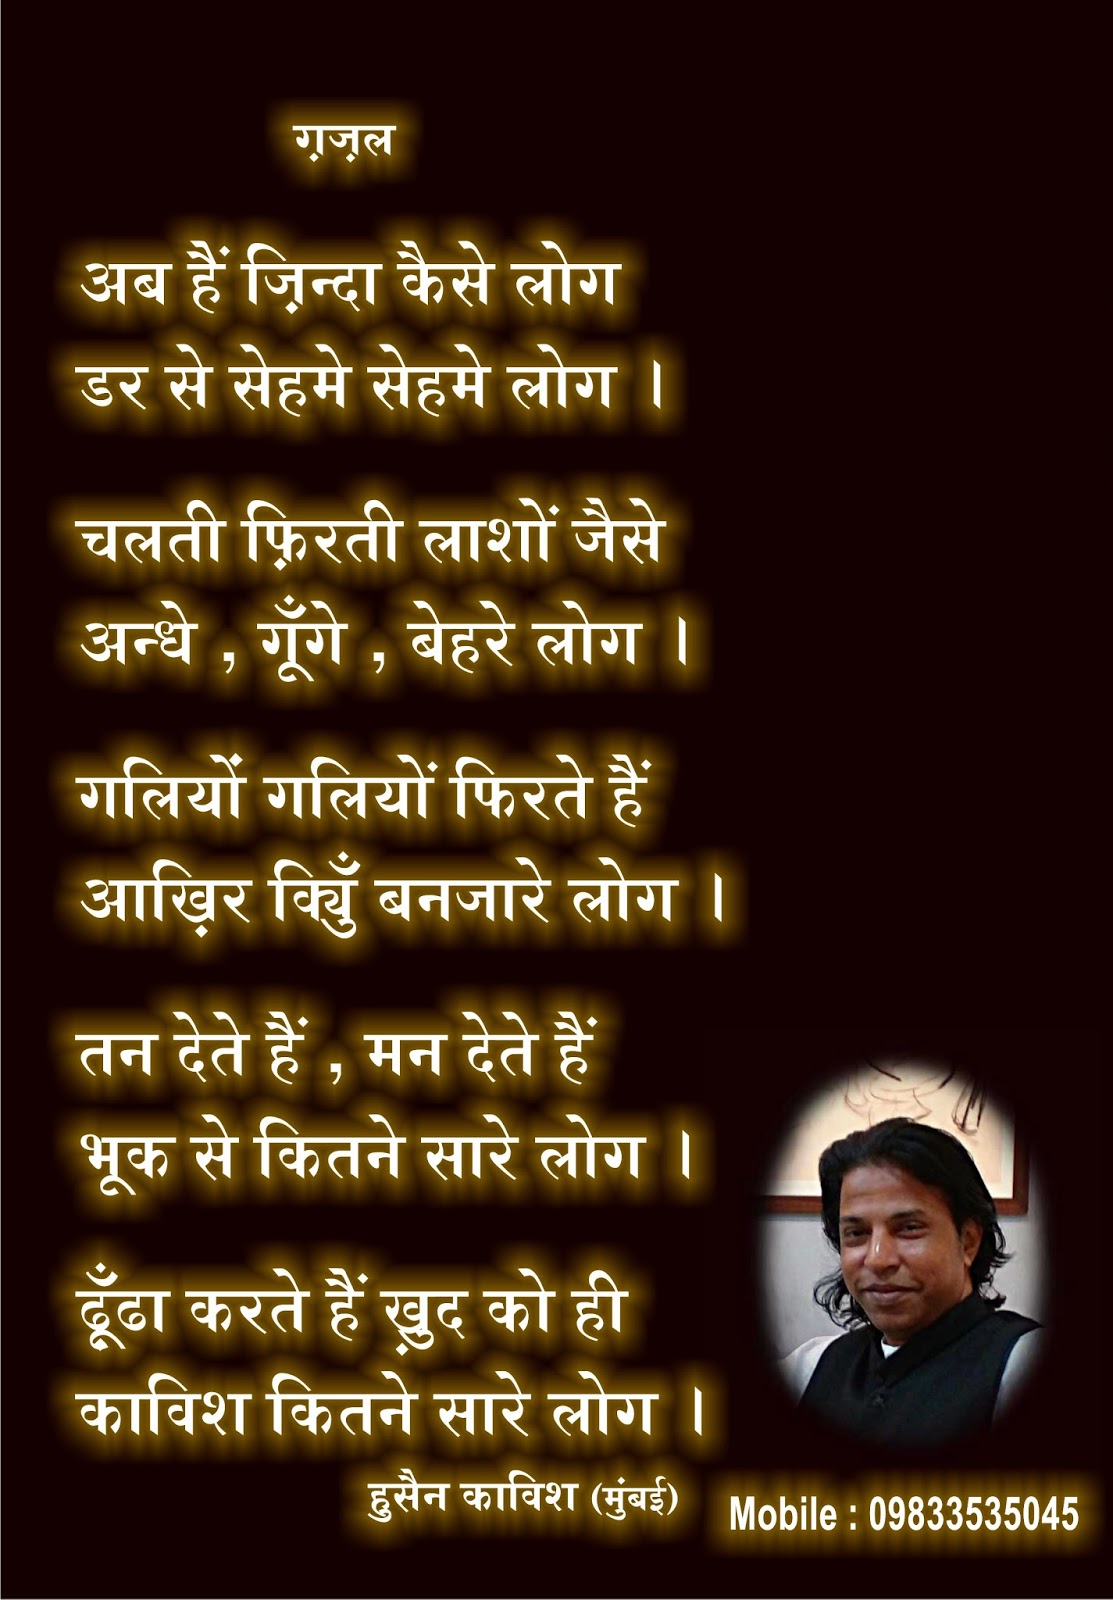 ग़ज़ल
अब हैं ज़िन्दा कैसे लोग
डर से सेहमे सेहमे लोग ।
चलती फ़िरती लाशों जैसे
अन्धे , गूँगे , बेहरे लोग ।
गलियों गलियों फिरते हैं
आख़िर क्यिुँ बनजारे लोग ।
तन देते हैं , मन देते हैं
भूक से कितने सारे लोग ।
ढूँढा करते हैं ख़ुद को ही
काविश कितने सारे लोग ।
हुसैन काविश (मुंबई)
Mobile : 09833535045